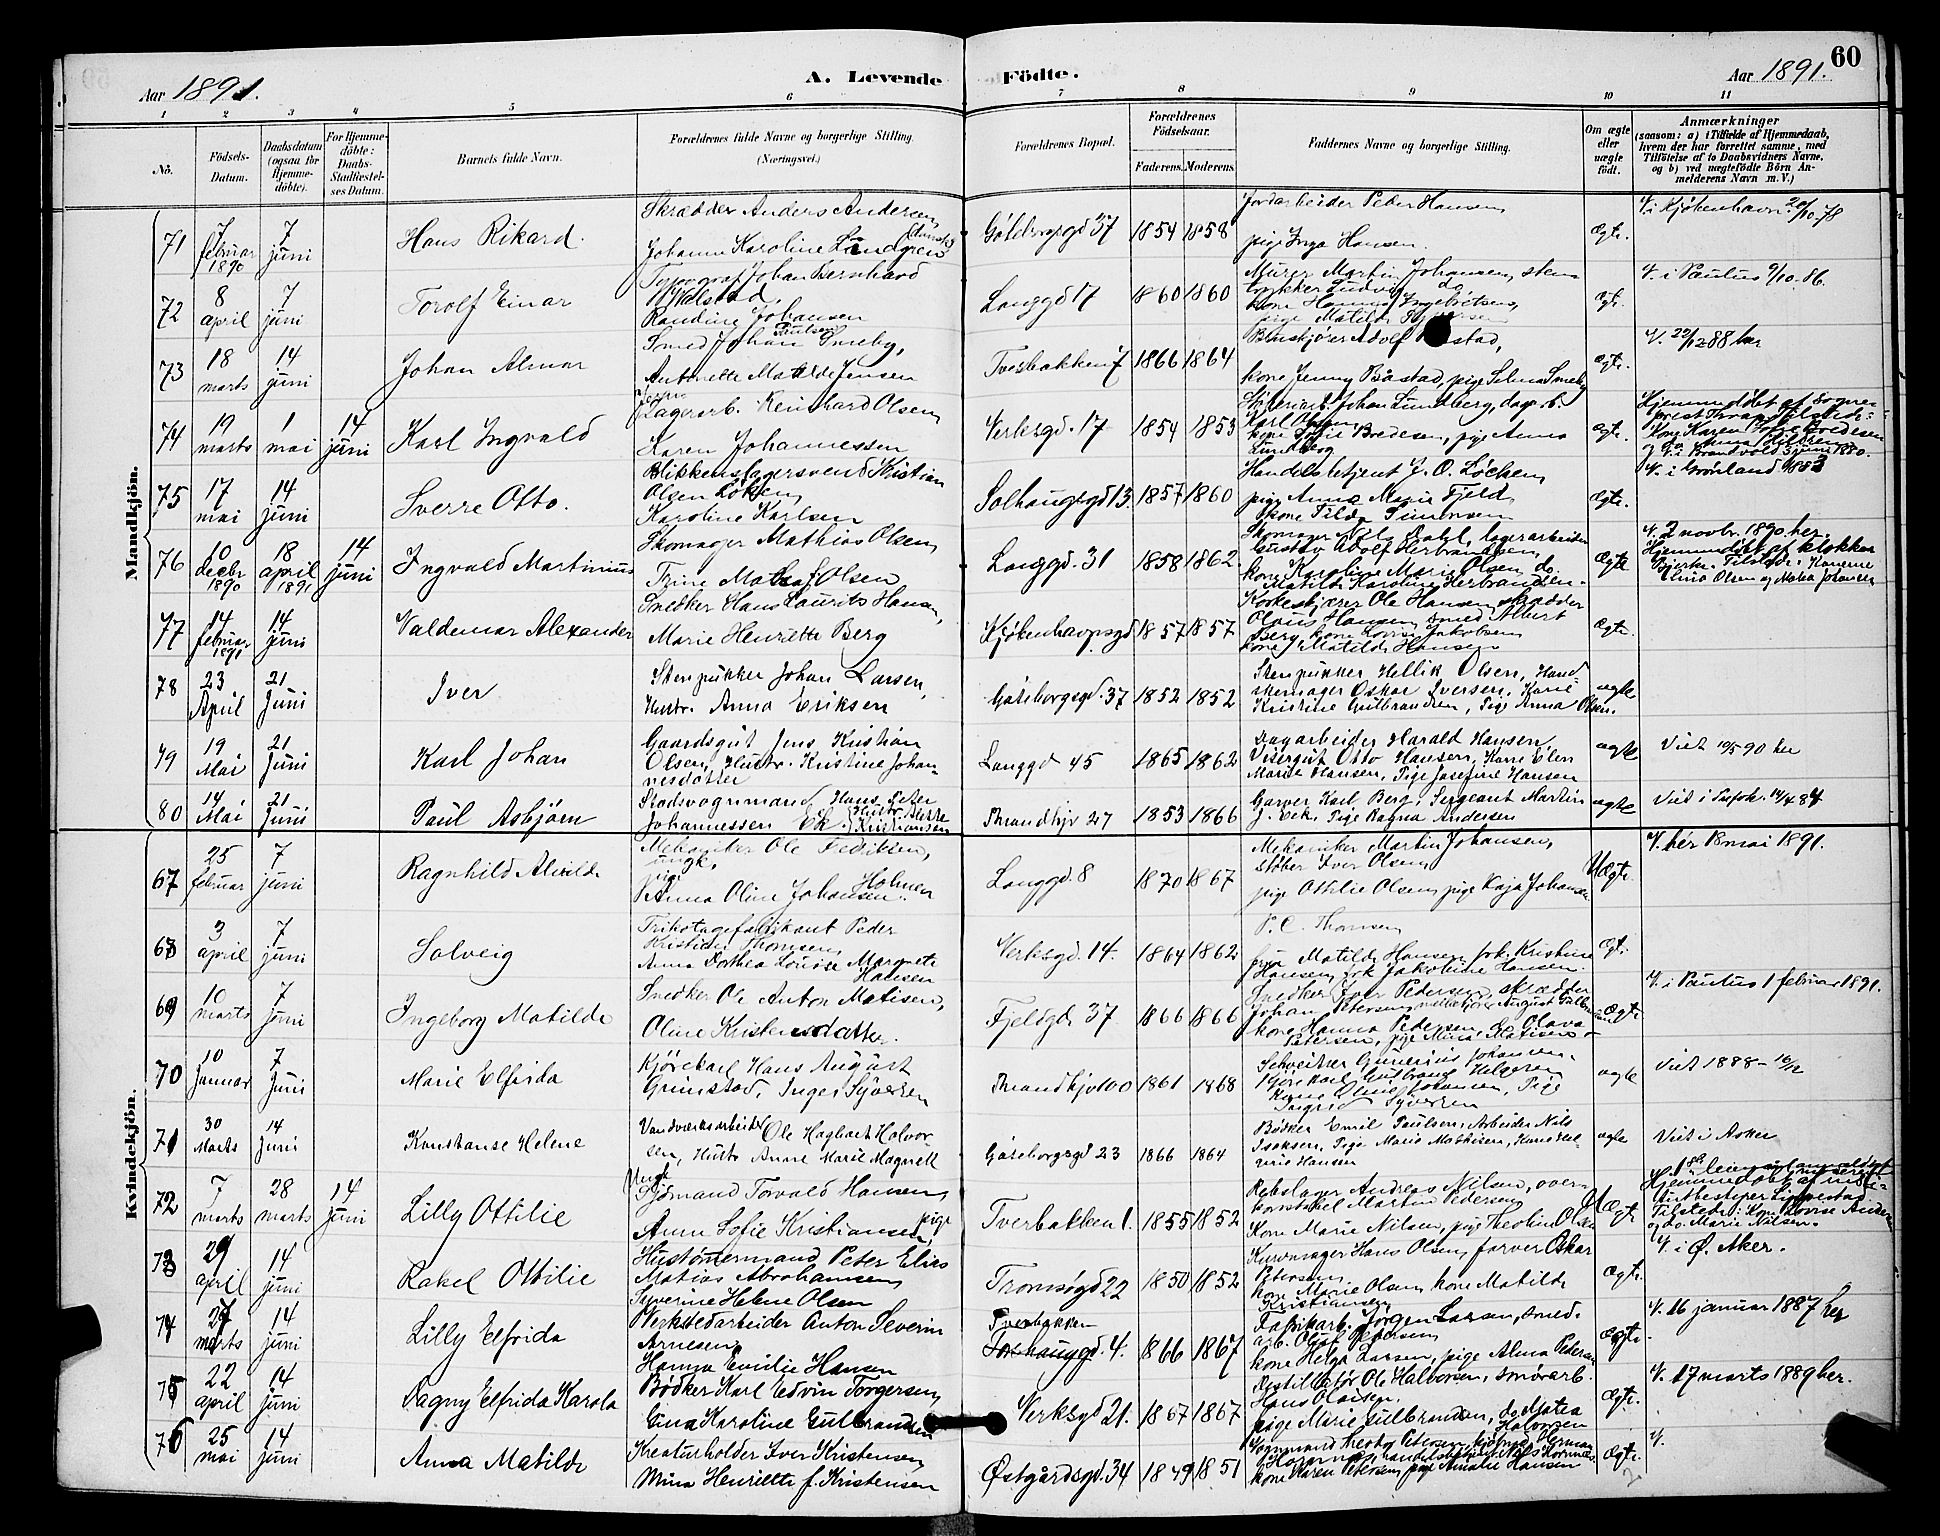 60
Aar 1891.
A. Levende Födte.
Aar 1891.
1 2 3 4 5 6 7 8 9 10 11
No.
Födsels-Datum.
Daabsdatum (ogsaa for Hjemme-döbte).
For Hjemme-döbte: Daabs-Stadfestel-ses Datum.
Barnets fulde Navn.
Forældrenes fulde Navne og borgerlige Stilling. (Næringsvei.)
Forældrenes Bopæl.
Forældrenes Födselsaar.
Faderens. Moderens.
Faddernes Navne og borgerlige Stilling.
Om ægte eller uægte födt.
Anmærkninger (saasom: a) i Tilfælde af Hjemmedaab, hvem der har forrettet samme, med Tilföielse af to Daabsvidners Navne, og b) ved uægtefödte Börn An-melderens Navn m. V.)
Mandkjön.
71 7 februar 1890 7 juni Hans Rikard. Skrædder Anders Andersen Johanne Karoline Lundgren Göteborgsgd 37 1854 1858 Jordarbeider Peder Hansen pige Inga Hansen. Ægte. V. i Kjøbenhavn 20/10 78
72 8 april 7 juni Torolf Einar Typograf Johan Bernhard Randine Johansen Langgd 17 1860 1860 Murer Martin Johansen, sten trykker Ludvig do kone Hanna Ingebretsen, pige Matilde Ægt. V. i Paulus 9/10. 86.
73 18 marts 14 juni Johan Almar Smed Johan Paulsen Smeby, Antonette Matilde Jensen Tvesbakken 7 1866 1864 Adolf kone Jenny Båstad, pige Selma Smeby Ægt. V. 22/12 88 her
74 19 marts 1 mai 14 juni Karl Ingvald Lagerarb. Reinhard Olsen, Karen Johannessen Verksgd. 17 1854 1853 Johan Lundberg, dagarb. Karl Olsen, kone Sofie Bredesen, pige Anna Lundberg Ægte. Hjemmedøbt af Sogneprest Tilstede: Kone Karen Sofie Bredesen V. i Brandvold 3 juni 1880.
75 17 mai 14 juni Sverre Otto. Blikkenslagersvend Kristian Olsen Løken, Karoline Karlsen Solhaugsgd 13. 1857 1860 Handelsbetjent J. O. Løken, pige Anna Marie Fjeld, kone Tilda Simensen Ægte. V. i Grønland 1883
76 10 decbr 1890 18 april 1891 14 juni Ingvald Martinius Skomager Mathias Olsen, Trine Olsen Langgd. 31 1858 1862. Skomager Nils Dahl, lagerarbeider Gustav Adolf Herbrandsen, kone Karoline Marie Olsen, do. Matilde Karoline Herbrandsen. Ægte V. 2 novbr. 1890 her. Hjemmedøbt af klokker Bjerke. Tilstede: Konerne Elina Olsen og Matea Johansen
77 14 februar 1891 14 juni Valdemar Alexander Snedker Hans Laurits Hansen, Marie Henriette Berg Kjøbenhavnsgd 1857 1857 Korkeskjærer Ole Hansen, skrædder Olaus Hansen, smed Albert Berg, kone Lovise Jakobsen kone Matilde Hansen Ægte.
78 23 April 21 Juni Iver Stenpukker Johan Larsen, Hustr. Anna Eriksen Göteborgsgd. 37 1852 1852 Stenpukker Hellik Olsen, Handskemager Oskar Iversen, Kone Kristine Gulbrandsen, Pige Anna Olsen. ægte
79 19 Mai 21 Juni Karl Johan Gaardsgut Jens Kristian Olsen, Hustr. Kristine Johannesdatter Langgd 45 1865 1862 Dagarbeider Harald Hansen, Visergut Otto Hansen, Kone Elen Marie Hansen, Pige Josefine Hansen ægte Viet 10/5 90 her
80 14 Mai 21 Juni Paul Asbjørn Stadsvognmand Hans Peter Johannessen Ek. Hustr. Kristiansen Thrandhjv 27 1853 1866 Garver Karl Berg, Sergeant Martin J. Eek, Pige Ragna Andersen ægte Viet i 14/4 84
Kvindekjön.
67 25 februar 7 juni Ragnhild Alvilde Mekaniker Ole Fredriksen, ungk. pige Anna Oline Johansen Holmen. Langgd. 8 1870 1867 Mekaniker Martin Johansen, støber Iver Olsen, pige Ottilie Olsen, pige Kaja Johansen Uægte. V. her 18 mai 1891.
68 3 april 7 juni Solveig Trikotagefabrikant Peder Kristian Thomsen, Anna Dorthea Louise Margrete Hansen Verksgd. 14. 1864 1862 P. C. Thomsen frue Matilde Hansen, frk. Kristine Hansen, frk Jakobine Hansen. Ægt.
69 10 marts 7 juni Ingeborg Matilde Snedker Ole Anton Matisen, Oline Kristensdatter. Fjeldgd. 37 1866 1866 Snedker Iver Pedersen, skrædder Johan Petersen, August kone Hanna Pedersen, do Olava Petersen, pige Mina Matisen Ægte V. i Paulus 1 februar 1891.
70 10 Januar 7 Juni Marie Elfrida Kjørekarl Hans August Grimstad, Inger Syversen Thrandhjv 100 1861 1868 Johansen, Kjørekarl Gulbrand Helgesen Kone Johansen, Pige Ingrid Syversen ægte Viet 1888 – 16/12
71 30 Marts 14 Juni Konstanse Helene Vandværksarbeider Ole Hagbart Halvorsen, Hustr. Anne Marie Magnell Göteborgsgd 23 1866 1864 Bødker Emil Paulsen, Arbeider Nils Isaksen, Pige Marie Mathisen, Kone Hansen ægte Viet i Asker
72 7 marts 28 marts 14 juni Lilly Ottilie Ungk Sjømand Torvald Hansen, pige Anna Sofie Kristiansen, Tverbakken 1. 1855 1852 Rebslager Andreas Nilsen, overkonstabel Martin Pedersen Kone Marie Nilsen, pige Theoline Olsen Uægt. Hjemmedøbt af Tilstede: Kone Lovise Andersen og do. Marie Nilsen.
73 29 april 14 juni Rakel Ottilie Hustømmermand Peter Elias Matias Abrahamsen, Syverine Helene Olsen Tromsøgd 22 1850 1852 Kurvmager Hans Olsen, farver Oskar Petersen, kone Marie Olsen, kone Matilde Kristiansen Ægte. V. i Ø. Aker.
74 27 marts 14 juni Lilly Elfrida Verkstedarbeider Anton Severin Arnesen Hanna Emilie Hansen Tverbakken 4. 1866 1867 Fabrikarb. Jørgen Larsen, smedarb. Oluf Petersen kone Helga Larsen, pige Alma Petersen Ægte. V. 16 januar 1887 her
75 22 april 14 juni Dagny Elfrida Karola Bødker Karl Edvin Torgersen, Gina Karoline Gulbrandsen Verksgd 21. 1867 1867 Destillatør Ole Halvorsen, smørarb. Hans Olausen. pige Marie Gulbrandsen, do Matea Halvorsen Ægte. V. 17 marts 1889 her.
76 25 mai 14 juni Anna Matilde Kreaturholder Iver Kristensen, Mina Henriette f. Kristensen Østgårdsgd. 34 1849 1851 Vognmand Petersen, kone Karen Petersen, pige Amalie Hansen Ægte. V.